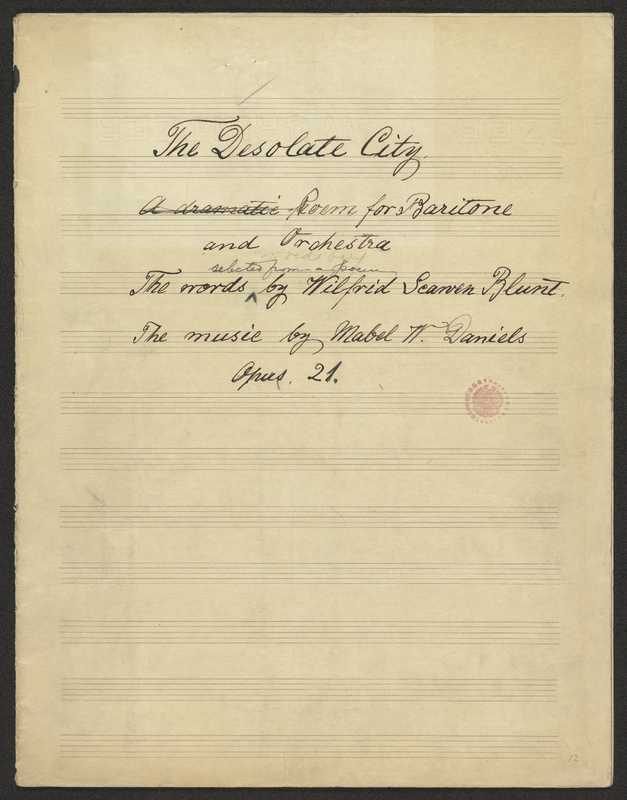 The Desolate City.
A dramatic Poem for Baritone
and Orchestra
selected from a poem
The words by Wilfrid Scawen Blunt.
The music by Mabel W. Daniels
Opus. 21.
12